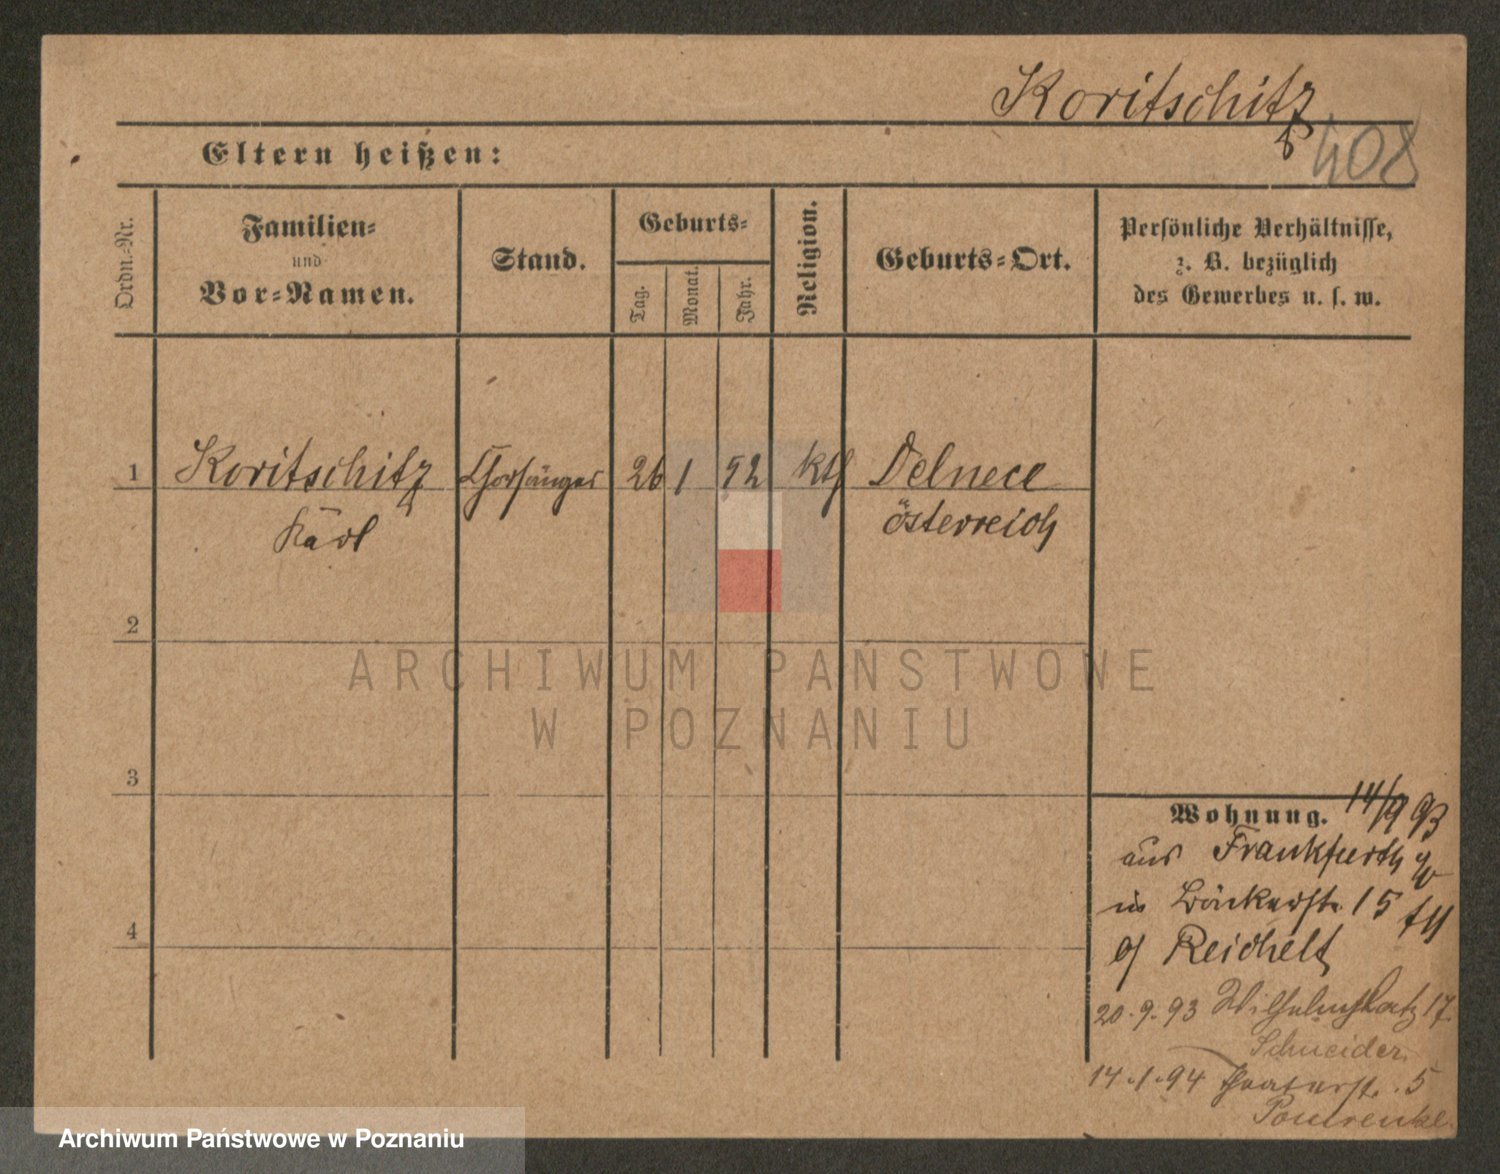 Koritschitz
408
Eltern heißen:
Ordn.-Nr.
Familien-
und
Vor-Namen.
Stand.
Geburts-
Tag.
Monat.
Jahr.
Religion.
Geburts-Ort.
Persönliche Verhältnisse,
z. B. bezüglich
des Gewerbes u. s. w.
1 Koritschitz Chorsänger 26 1 52 kth Delnece
Karl österreich
2
ARCHIWUM PAŃSTWOWE
W POZNANIU
3
4
Wohnung. 14/9 93
aus Frankfurth
in Bäckerstr. 15
b/ Reichelt
20.9.93 Wilhelmsplatz 17.
Schneider.
14.1.94 Theaterstr. 5
Pomrenke
Archiwum Państwowe w Poznaniu